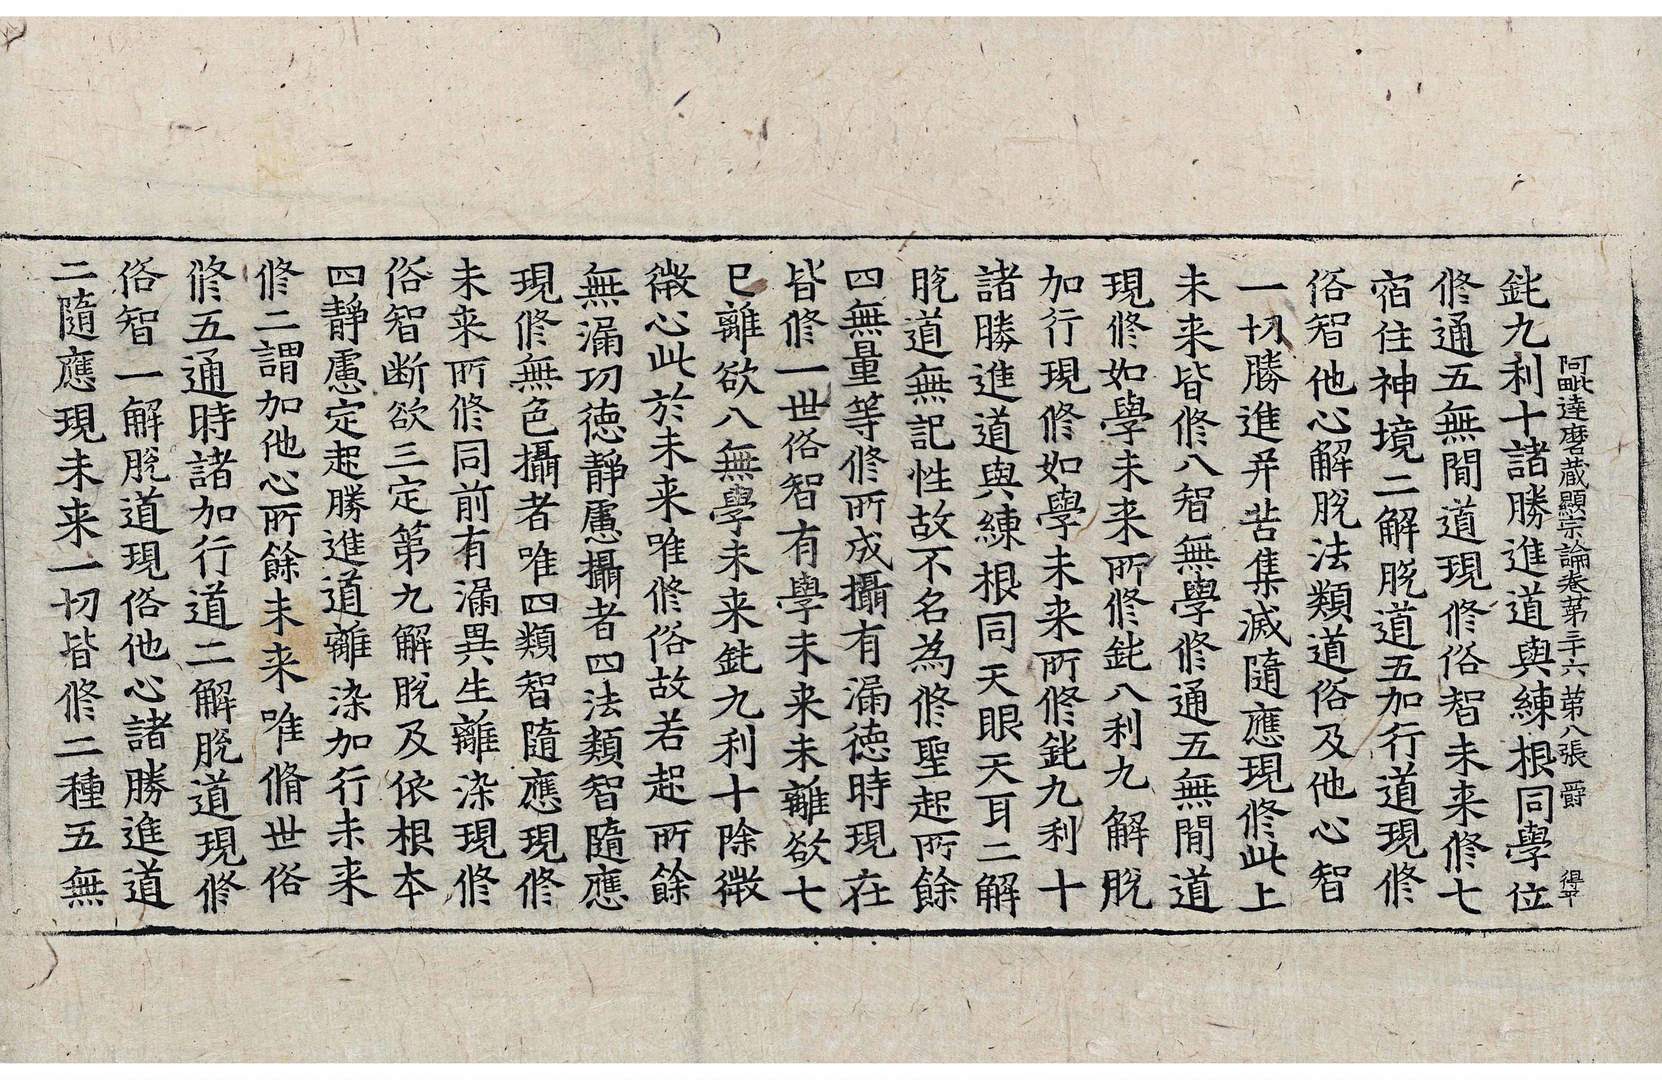 阿毗達磨藏顯宗論卷第三十六 第八張 爵 得平
鈍九利十諸勝進道與練根同學位
修通五無間道現修俗智未来修七
宿住神境二解脫道五加行道現修
俗智他心解脫法類道俗及他心智
一切勝進并苦集滅隨應現修此上
未来皆修八智無學修通五無間道
現修如學未来所修鈍八利九解脫
加行現修如學未来所修鈍九利十
諸勝進道與練根同天眼天耳二解
脫道無記性故不名為修聖起所餘
四無量等修所成攝有漏德時現在
皆修一世俗智有學未来未離欲七
已離欲八無學未来鈍九利十除微
微心此於未来唯修俗故若起所餘
無漏功德靜慮攝者四法類智隨應
現修無色攝者唯四類智隨應現修
未来所修同前有漏異生離染現修
俗智断欲三定第九解脫及依根本
四靜慮定起勝進道離染加行未来
修二謂加他心所餘未来唯脩世俗
修五通時諸加行道二解脫道現修
俗智一解脫道現俗他心諸勝進道
二隨應現未来一切皆修二種五無